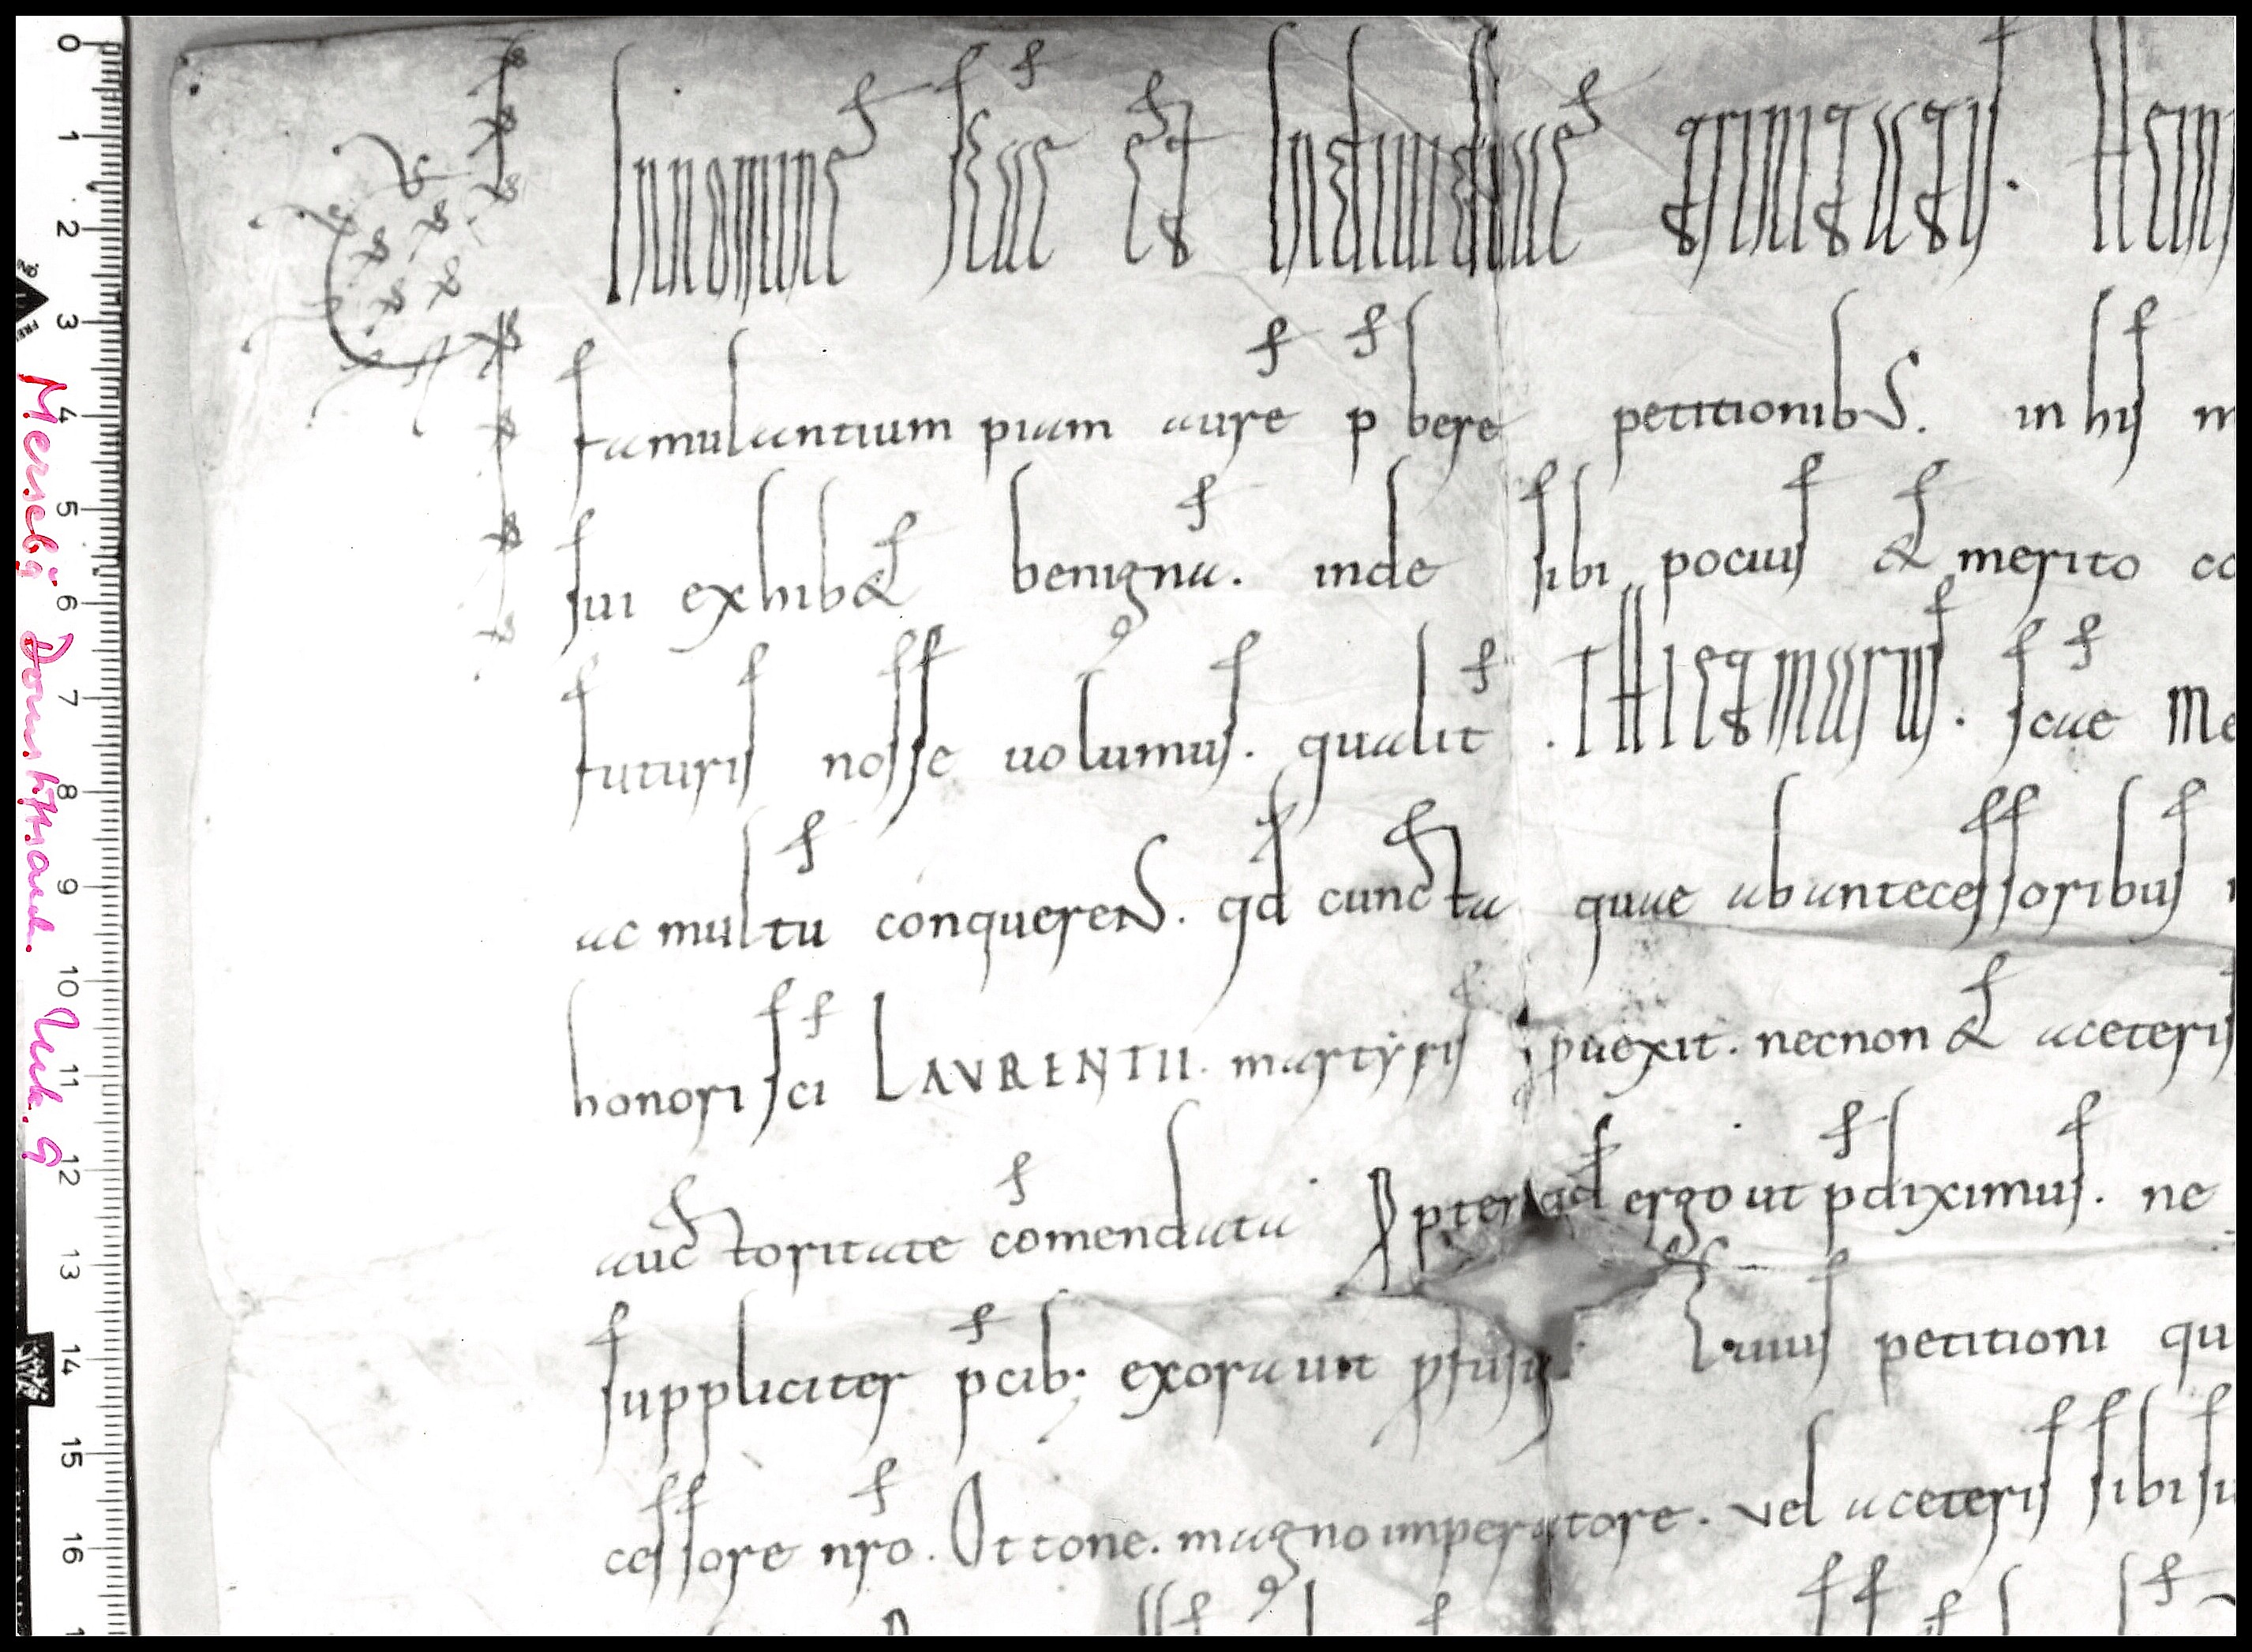 In nomine scae et indiuiduae trinitatis. Hein
famulantium piam aure pbere petitionib;. in his m
sui exhib& benigna. inde sibi pocius & merito co
futuris nosse uolumus. qualit . THIETMARUS. scae Me
ac multu conqueren;. qd cuncta quae ab antecessoribus
honori sci LAVRENTII. martyris puexit. necnon & a ceteris
auctoritate comendata Ppter qd ergo ut pdiximus. ne
suppliciter pcib; exorauit Cuius petitioni qu
cessore nro. Ottone. magno imperatore. vel a ceteris sibi su
0 1 2 3 4 5 6 7 8 9 10 11 12 13 14 15 16
Merseburg Domstiftsarch. Urk. 9